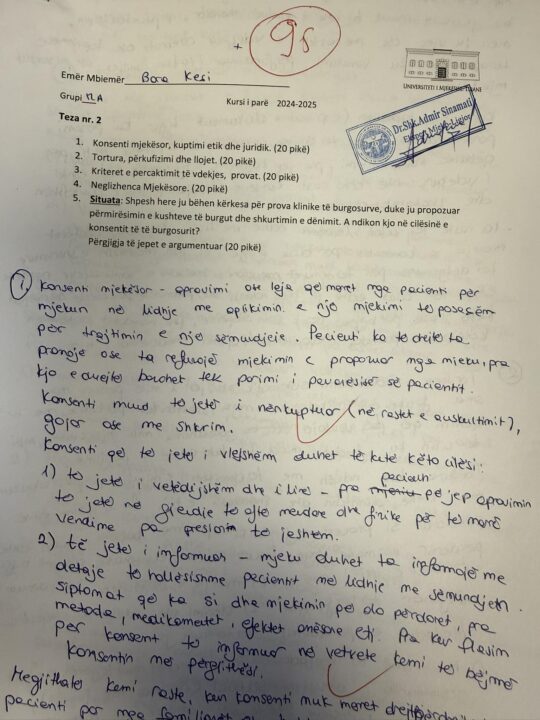 + 95
Emër Mbiemër Bora Kesi
UNIVERSITETI I MJEKËSISË, TIRANË
Grupi II A Kursi i parë 2024-2025
Dr.Shk.Admir Sinamati
Ekspert Mjeko-Ligjor
Teza nr. 2
1. Konsenti mjekësor, kuptimi etik dhe juridik. (20 pikë)
2. Tortura, përkufizimi dhe llojet. (20 pikë)
3. Kriteret e percaktimit të vdekjes, provat. (20 pikë)
4. Neglizhenca Mjekësore. (20 pikë)
5. Situata: Shpesh here ju bëhen kërkesa për prova klinike të burgosurve, duke ju propozuar
përmirësimin e kushteve të burgut dhe shkurtimin e dënimit. A ndikon kjo në cilësinë e
konsentit të të burgosurit?
Përgjigja të jepet e argumentuar (20 pikë)
1. Konsenti mjekësor - aprovimi ose leja që merret nga pacienti për
mjekun në lidhje me aplikimin e një mjekimi të posaçëm
për trajtimin e një sëmundjeje. Pacienti ka të drejtë ta
pranojë ose ta refuzojë mjekimin e propozuar nga mjeku, pra
kjo e drejtë bazohet tek parimi i pavarësisë së pacientit.
Konsenti mund të jetë i nënkuptuar (në rastet e auskultimit),
gojor ose me shkrim.
Konsenti që të jetë i vlefshëm duhet të ketë këto cilësi:
1) të jetë i vetëdijshëm dhe i lirë - pra pacienti që jep aprovimin
të jetë në gjendje të aftë mendore dhe fizike për të marrë
vendime pa presion të jashtëm.
2) të jetë i informuar - mjeku duhet ta informojë me
detaje të hollësishme pacientit në lidhje me sëmundjen,
simptomat që ka si dhe mjekimin që do përdoret, pra
metoda, medikamentet, efektet anësore etj. Pra kur flasim
për konsent të informuar në vetvete kemi të bëjmë
konsentin në përgjithësi.
Megjithatë kemi raste, kur konsenti nuk merret
pacienti por nga